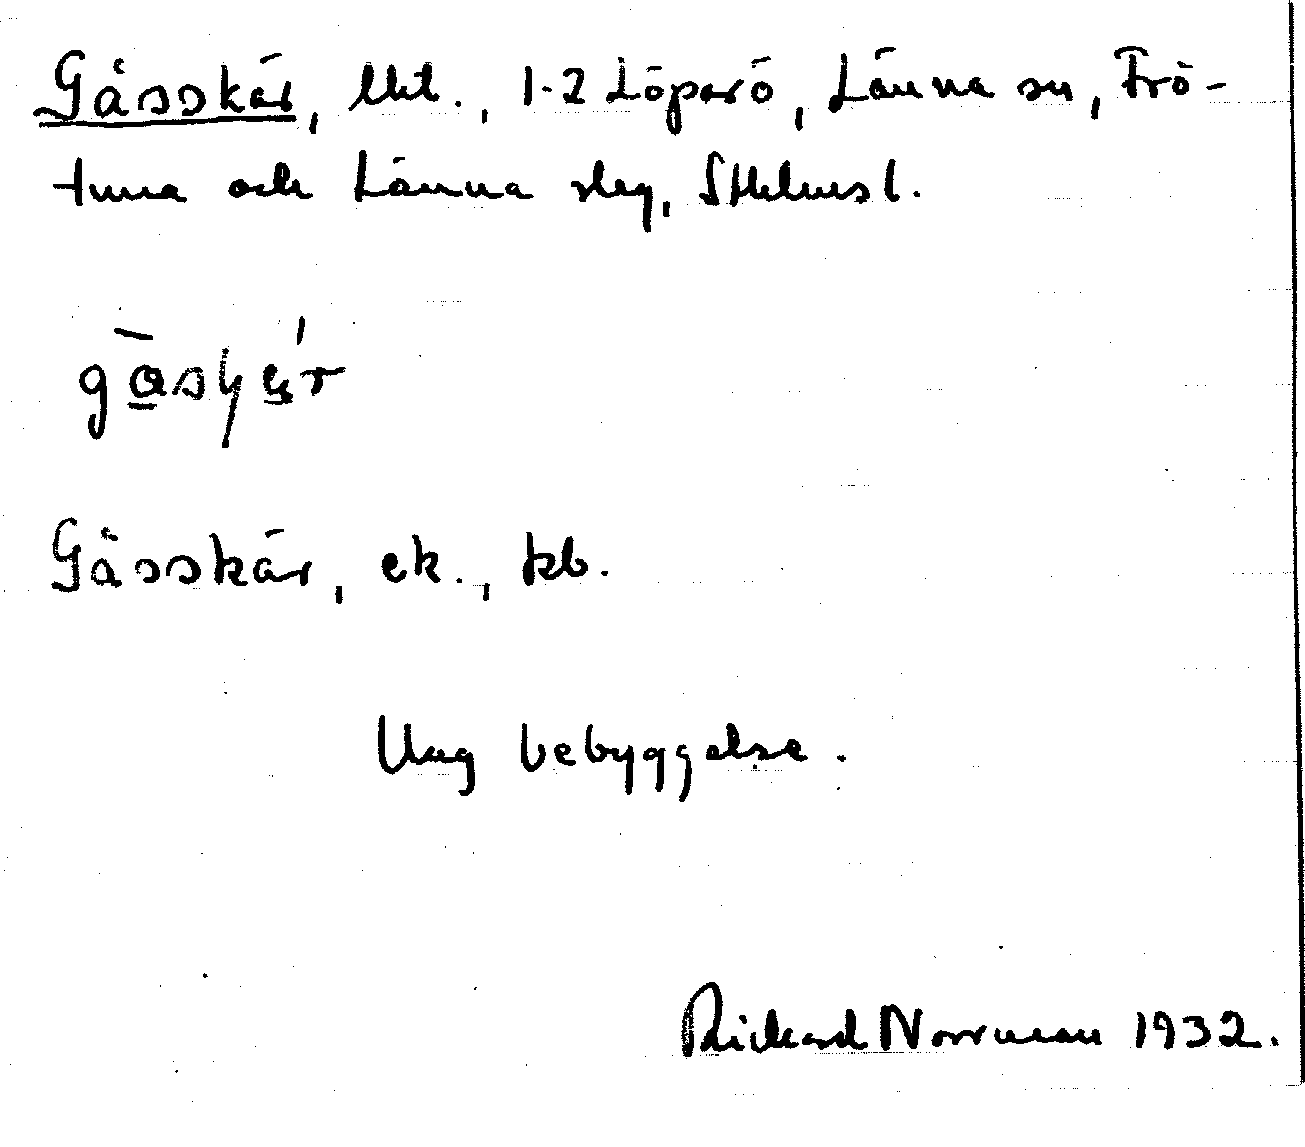 Gåsskär, lht., 1-2 Löparö, Länna sn, Frö-
tuna och Länna skg, Sthlms l.
gåsɧär
Gåsskär, ek., kb.
Ung bebyggelse.
Rickard Norrman 1932.